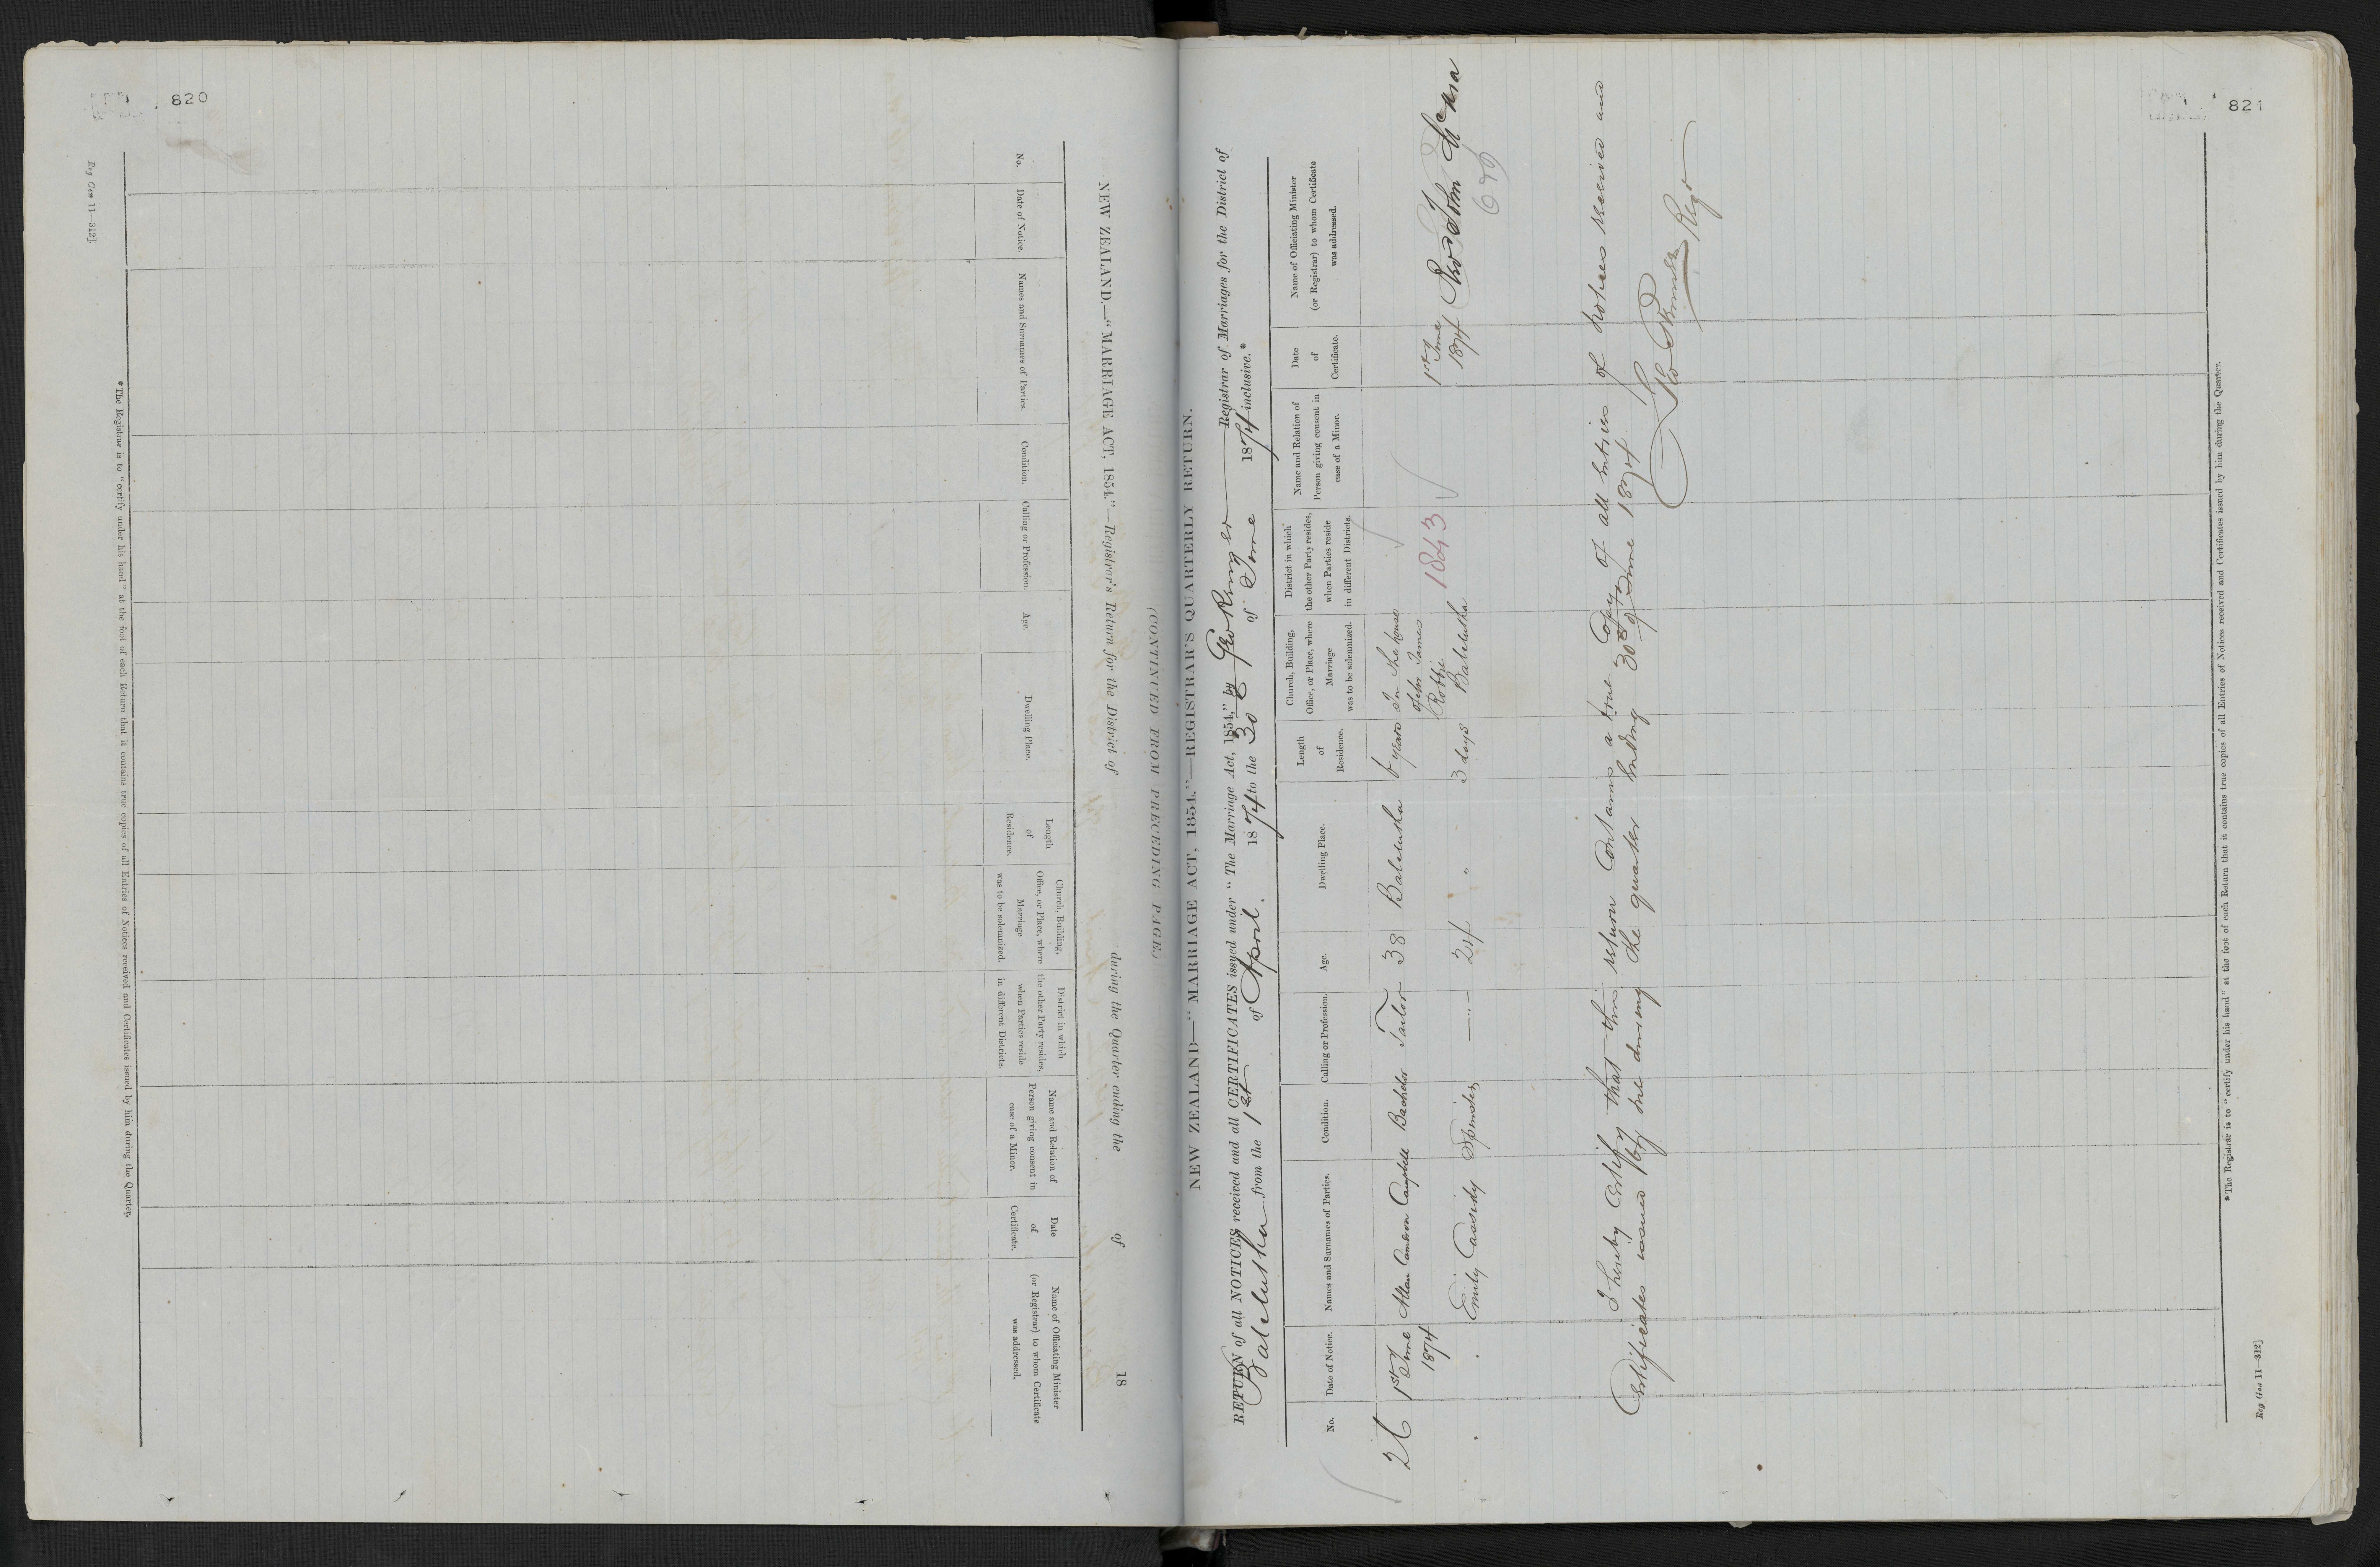 820
Reg Gen 11—312]
NEW ZEALAND.—"MARRIAGE ACT, 1854."—Registrar's Return for the District of during the Quarter ending the of 18
No.
Date of Notice.
Names and Surnames of Parties.
Condition.
Calling or Profession.
Age.
Dwelling Place.
Length
of
Residence.
Church, Building,
Office, or Place, where
Marriage
was to be solemnized.
District in which
the other Party resides,
when Parties reside
in different Districts.
Name and Relation of
Person giving consent in
case of a Minor.
Date
of
Certificate.
Name of Officiating Minister
(or Registrar) to whom Certificate
was addressed.
* The Registrar is to "certify under his hand" at the foot of each Return that it contains true copies of all Entries of Notices received and Certificates issued by him during the Quarter.
(CONTINUED FROM PRECEDING PAGE)
821
NEW ZEALAND—"MARRIAGE ACT, 1854."—REGISTRAR'S QUARTERLY RETURN.
RETURN of all NOTICES received and all CERTIFICATES issued under "The Marriage Act, 1854," by Registrar of Marriages for the District of
Balclutha from the 1st of April. 1874 to the 30 of June 1874 inclusive.*
No.
Date of Notice.
Names and Surnames of Parties.
Condition.
Calling or Profession.
Age.
Dwelling Place.
Length
of
Residence.
Church, Building,
Office, or Place, where
Marriage
was to be solemnized.
District in which
the other Party resides,
when Parties reside
in different Districts.
Name and Relation of
Person giving consent in
case of a Minor.
Date
of
Certificate.
Name of Officiating Minister
(or Registrar) to whom Certificate
was addressed.
26
1st June
1874
Allan Cameron Campbell Bachelor Tailor 38 Balclutha 6 years
In the house
of Mr James
Robbie
Balclutha
1843
1st June
1874
Revd John McAra
679
Emily Cassidy Spinster — " — 24 " 3 days
I hereby Certify that this return Contains a true Copy of all Entries of Notices Received and
Certificates issued by me during the quarter Ending 30th of June 1874
Regr
* The Registrar is to "certify under his hand" at the foot of each Return that it contains true copies of all Entries of Notices received and Certificates issued by him during the Quarter.
Reg Gen 11—312]